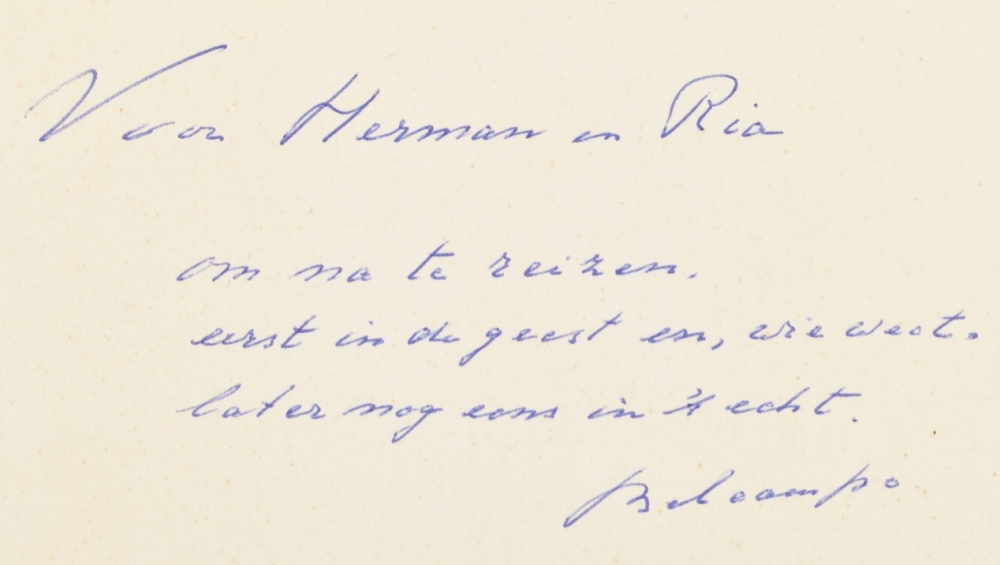 Voor Herman en Ria
om na te reizen.
eerst in de geest en, wie weet.
later nog eens in 't echt.
Belcampo